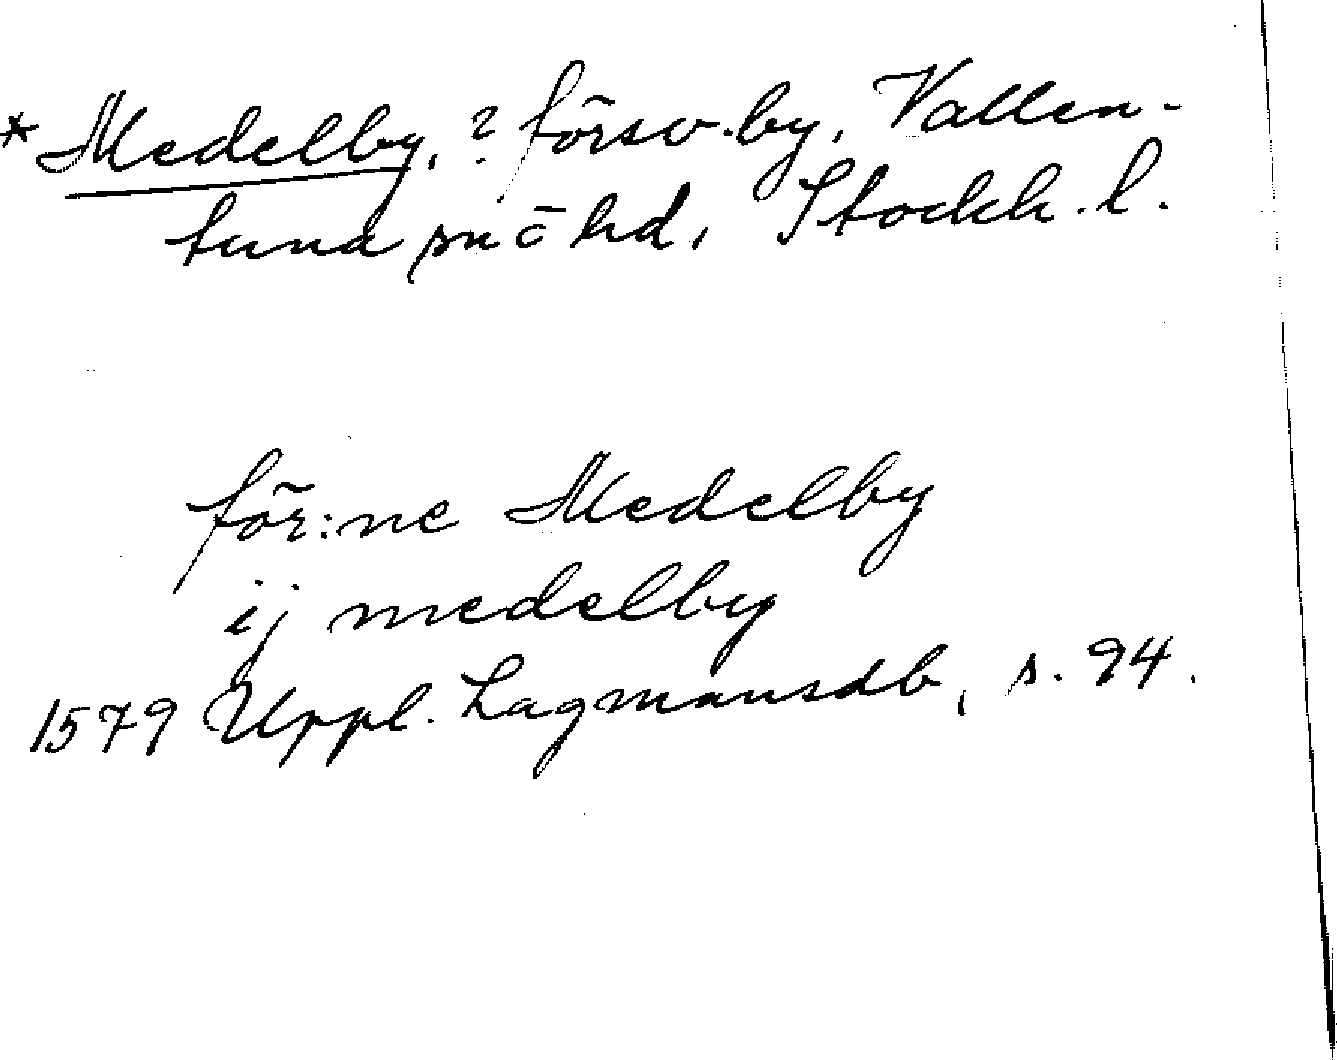 * Medelby, ? försv. by, Vallen-
tuna sn o hd, Stockh. l.
för:ne Medelby
ij medelby
1579 Uppl. Lagmansdb, s. 94.